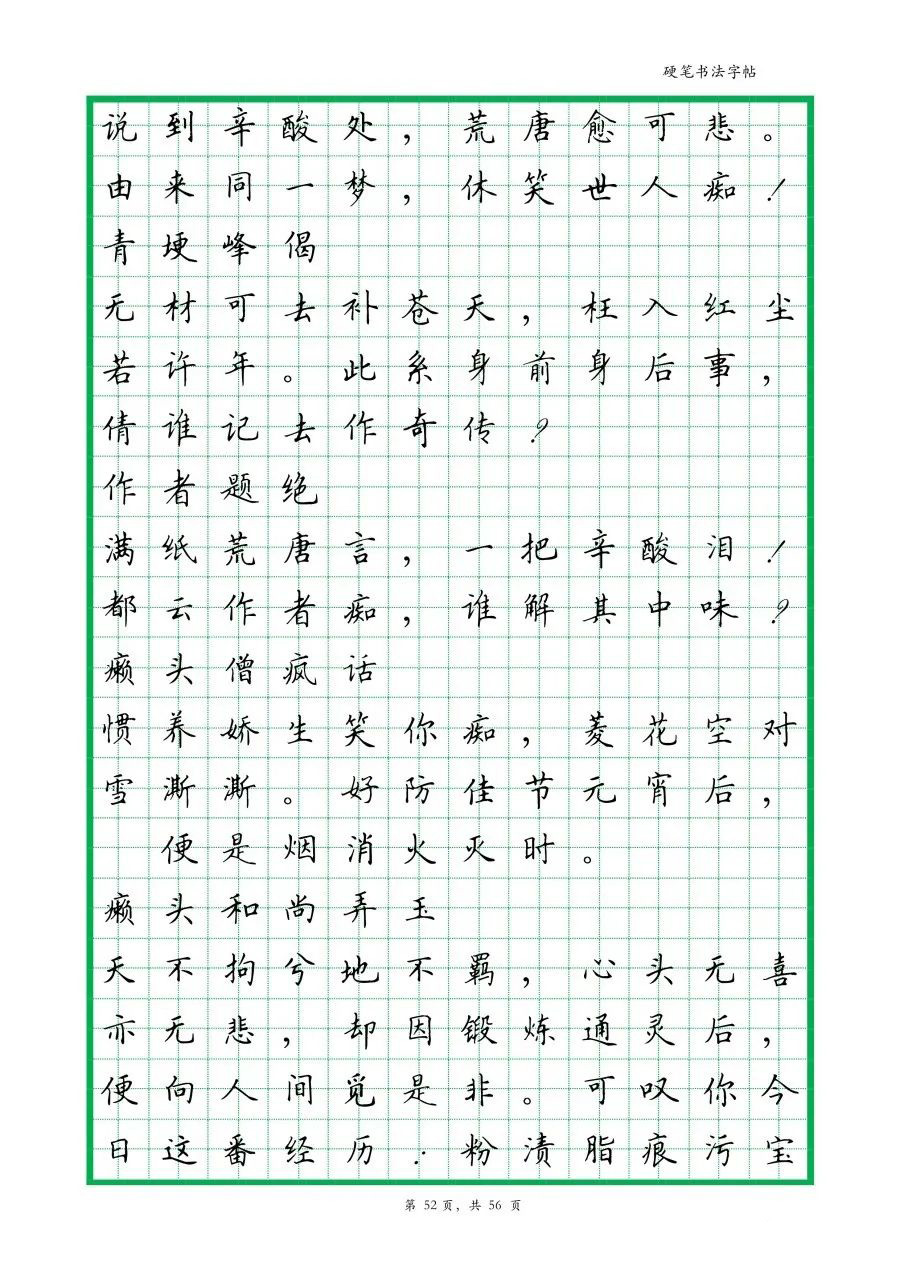 硬笔书法字帖
说到辛酸处，荒唐愈可悲。
由来同一梦，休笑世人痴！
青埂峰偈
无材可去补苍天，枉入红尘
若许年。此系身前身后事，
倩谁记去作奇传？
作者题绝
满纸荒唐言，一把辛酸泪！
都云作者痴，谁解其中味？
癞头僧疯话
惯养娇生笑你痴，菱花空对
雪澌澌。好防佳节元宵后，
便是烟消火灭时。
癞头和尚弄玉
天不拘兮地不羁，心头无喜
亦无悲，却因锻炼通灵后，
便向人间觅是非。可叹你今
日这番经历：粉渍脂痕污宝
第 52 页，共 56 页